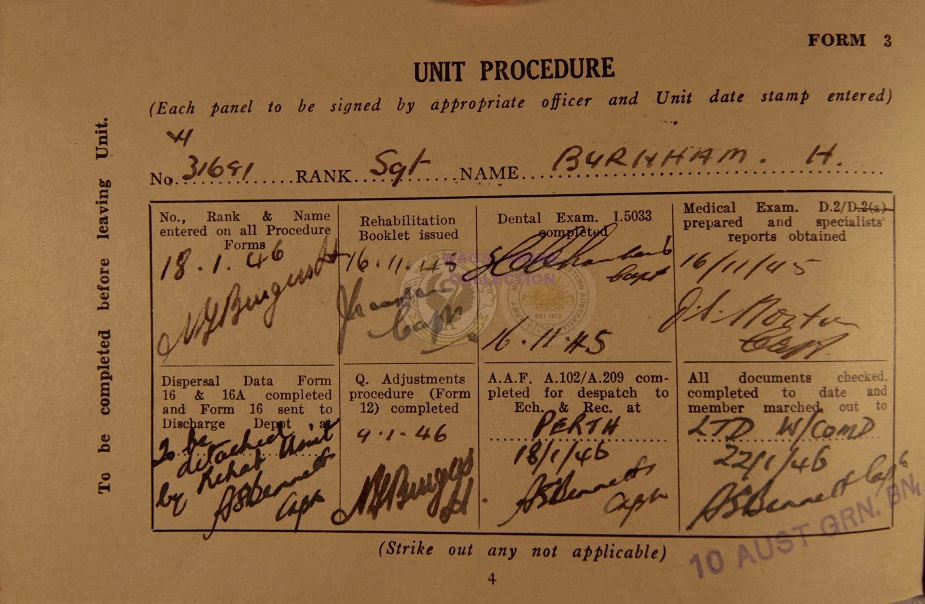 FORM 3
UNIT PROCEDURE
(Each panel to be signed by appropriate officer and Unit date stamp entered)
To be completed before leaving Unit.
No. 31691 RANK Sgt NAME BURNHAM. H.
No., Rank & Name
entered on all Procedure
Forms
18.1.46
Rehabilitation
Booklet issued
16.11.45
Capt
Dental Exam. I.5033
completed
Capt
16.11.45
Medical Exam. D.2/D.2(a)
prepared and specialists'
reports obtained
16/11/45
Capt.
Dispersal Data Form
16 & 16A completed
and Form 16 sent to
Discharge Depot at
To be
detached
by Rehab Unit
A S Bennett
Capt
Q. Adjustments
procedure (Form
12) completed
9.1.46
A.A.F. A.102/A.209 com-
pleted for despatch to
Ech. & Rec. at
PERTH
18/1/46
A S Bennett
Capt
All documents checked,
completed to date and
member marched out to
LTD W/COMD
22/1/46
A S Bennett Capt
10 AUST GRN. BN.
(Strike out any not applicable)
4